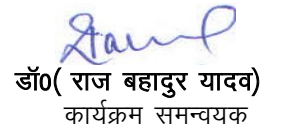 डॉ0( राज बहादुर यादव)
कार्यक्रम समन्वयक